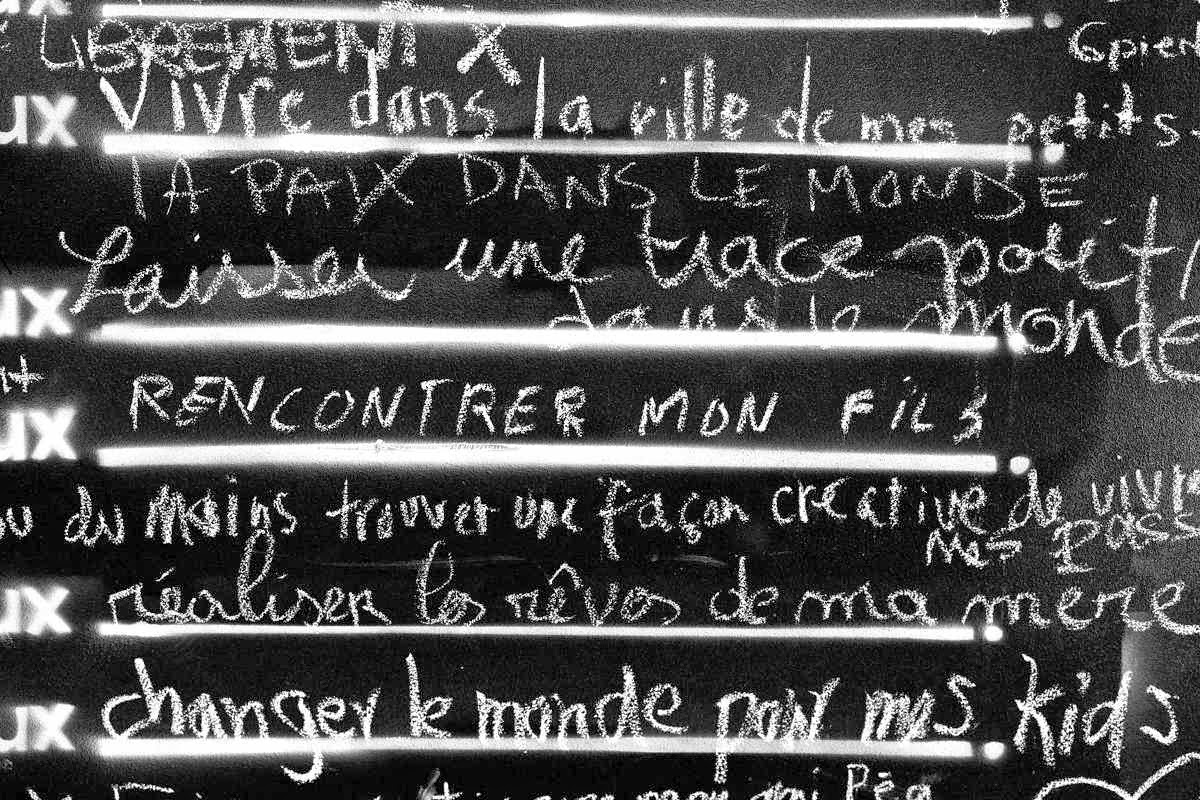 ux
LIBREMENT X
Vivre dans la ville de mes petits.
ux
LA PAIX DANS LE MONDE
Laisser une trace posit
dans le monde
ux
RENCONTRER MON FILS
ux
ou du moins trouver une façon créative de vivre
Mes pass
réaliser les rêves de ma mère
ux
changer le monde pour mes kids
ux